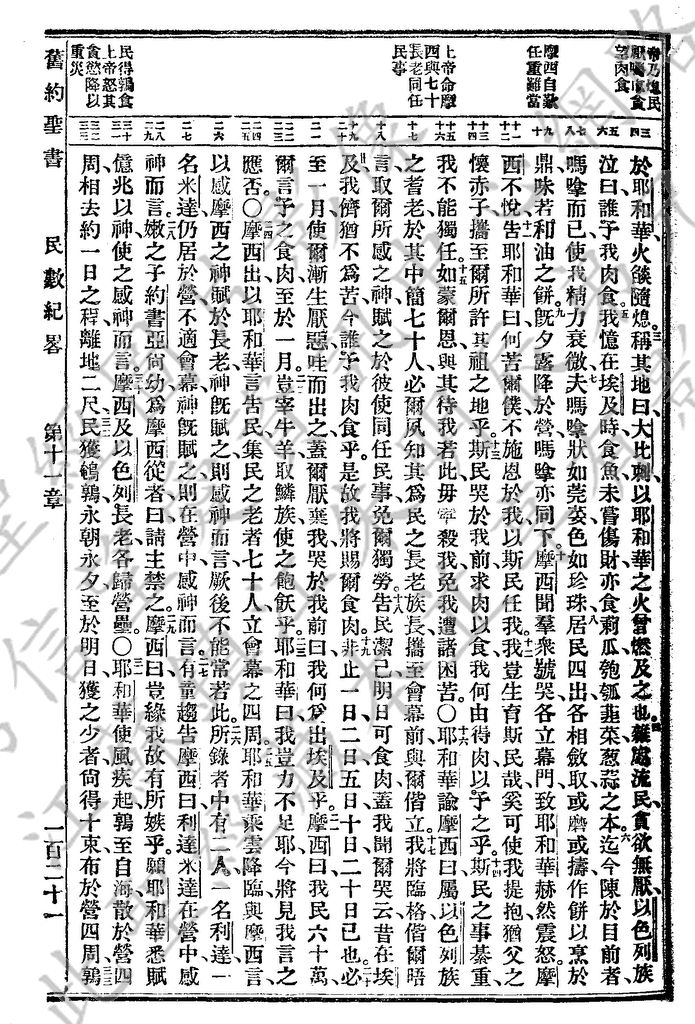 帝乃熄民
厭嗎嗱貪
望肉食
摩西自歎
任重難當
上帝命摩
西與七十
長老同任
民事
民得鶉食
上帝怒其
貪慾降以
重災
於耶和華火燄隨熄三稱其地曰大比剌以耶和華之火曾燃及之也四雜處流民貪欲無厭以色列族
泣曰誰予我肉食五我憶在埃及時食魚未嘗傷財亦食蓏瓜匏瓠韮菜葱蒜之本六迄今陳於目前者
嗎嗱而已使我精力衰微七夫嗎嗱狀如莞荽色如珍珠八居民四出各相斂取或磨或擣作餅以烹於
鼎味若利油之餅九旣夕露降於營嗎嗱亦同下十摩西聞羣衆號哭各立幕門致耶和華赫然震怒摩
西不悅十一告耶和華曰何苦爾僕不施恩於我以斯民任我十二我豈生育斯民哉奚可使我提抱猶父之
懷赤子攜至爾所許其祖之地乎十三斯民哭於我前求肉以食我何由得肉以予之乎十四斯民之事綦重
我不能獨任十五如蒙爾恩與其待我若此毋寧殺我免我遭諸困苦〇十六耶和華諭摩西曰屬以色列族
之耆老於其中簡七十人必爾夙知其爲民之長老族長攜至會幕前與爾偕立十七我將臨格偕爾晤
言取爾所感之神賦之於彼使同任民事免爾獨勞十八告民潔己明日可食肉蓋我聞爾哭云昔在埃
及我儕猶不爲苦今誰予我肉食乎是故我將賜爾食肉十九非止一日二日五日十日二十日已也二十必
至一月使爾漸生厭惡哇而出之蓋爾厭棄我哭於我前曰我何爲出埃及乎二一摩西曰我民六十萬
爾言予之食肉至於一月二二豈宰牛羊取鱗族使之飽飫乎二三耶和華曰我豈力不足耶今將見我言之
應否〇二四摩西出以耶和華言告民集民之老者七十人立會幕之四周二五耶和華乘雲降臨與摩西言
以感摩西之神賦於長老神旣賦之則感神而言厥後不能常若此二六所錄者中有二人一名利達一
名米達仍居於營不適會幕神旣賦之則在營中感神而言二七有童趨告摩西曰利達米達在營中感
神而言二八嫩之子約書亞自幼爲摩西從者曰請主禁之二九摩西曰豈緣我故有所嫉乎願耶和華悉賦
億兆以神使之感神而言三十摩西及以色列長老各歸營壘〇三一耶和華使風疾起鶉至自海散於營四
周相去約一日之程離地二尺三二民獲鵪鶉永朝永夕至於明日獲之少者尙得十束布於營四周三三鶉
舊約聖書 民數紀畧 第十一章 一百二十一